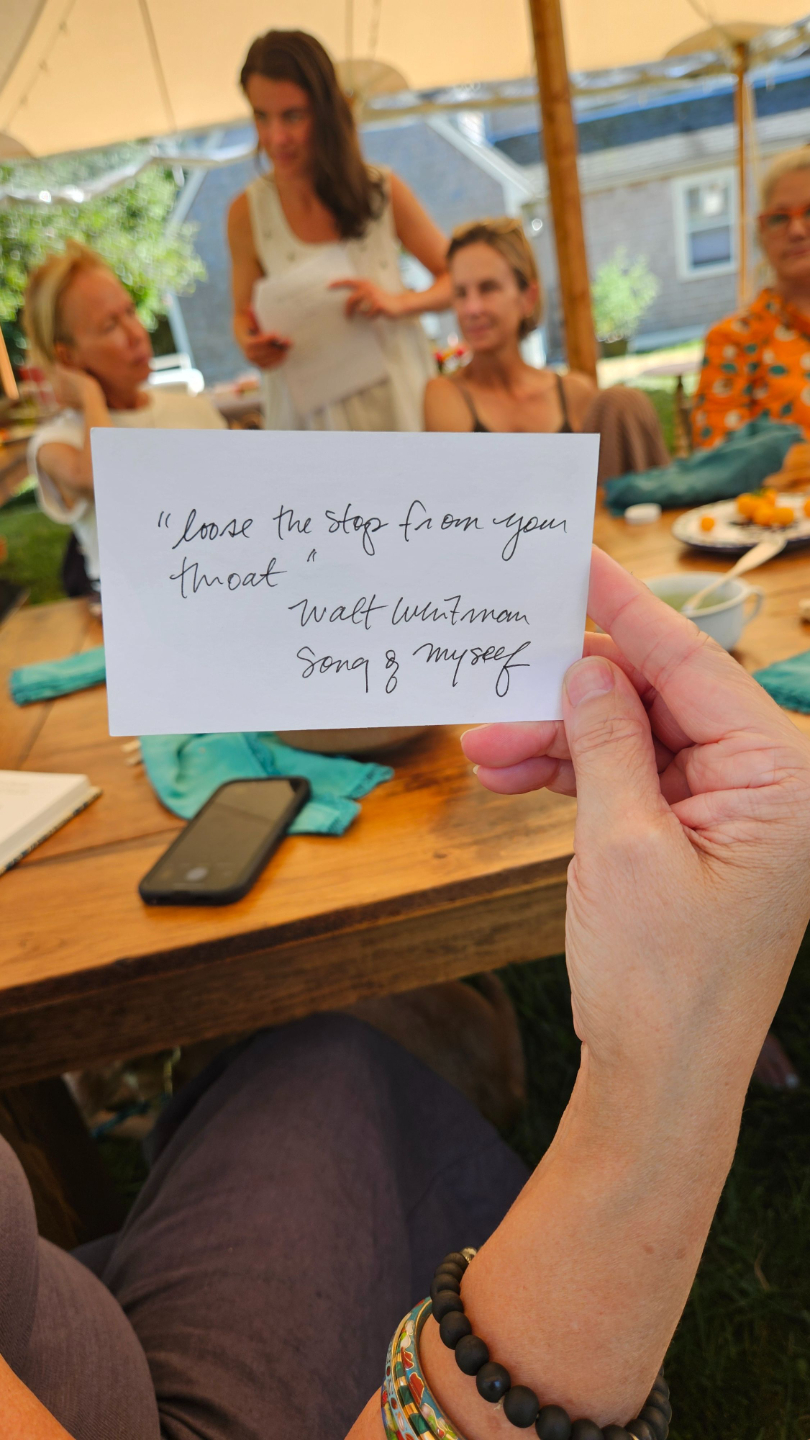 "loose the stop from your
throat"
Walt Whitman
Song of myself